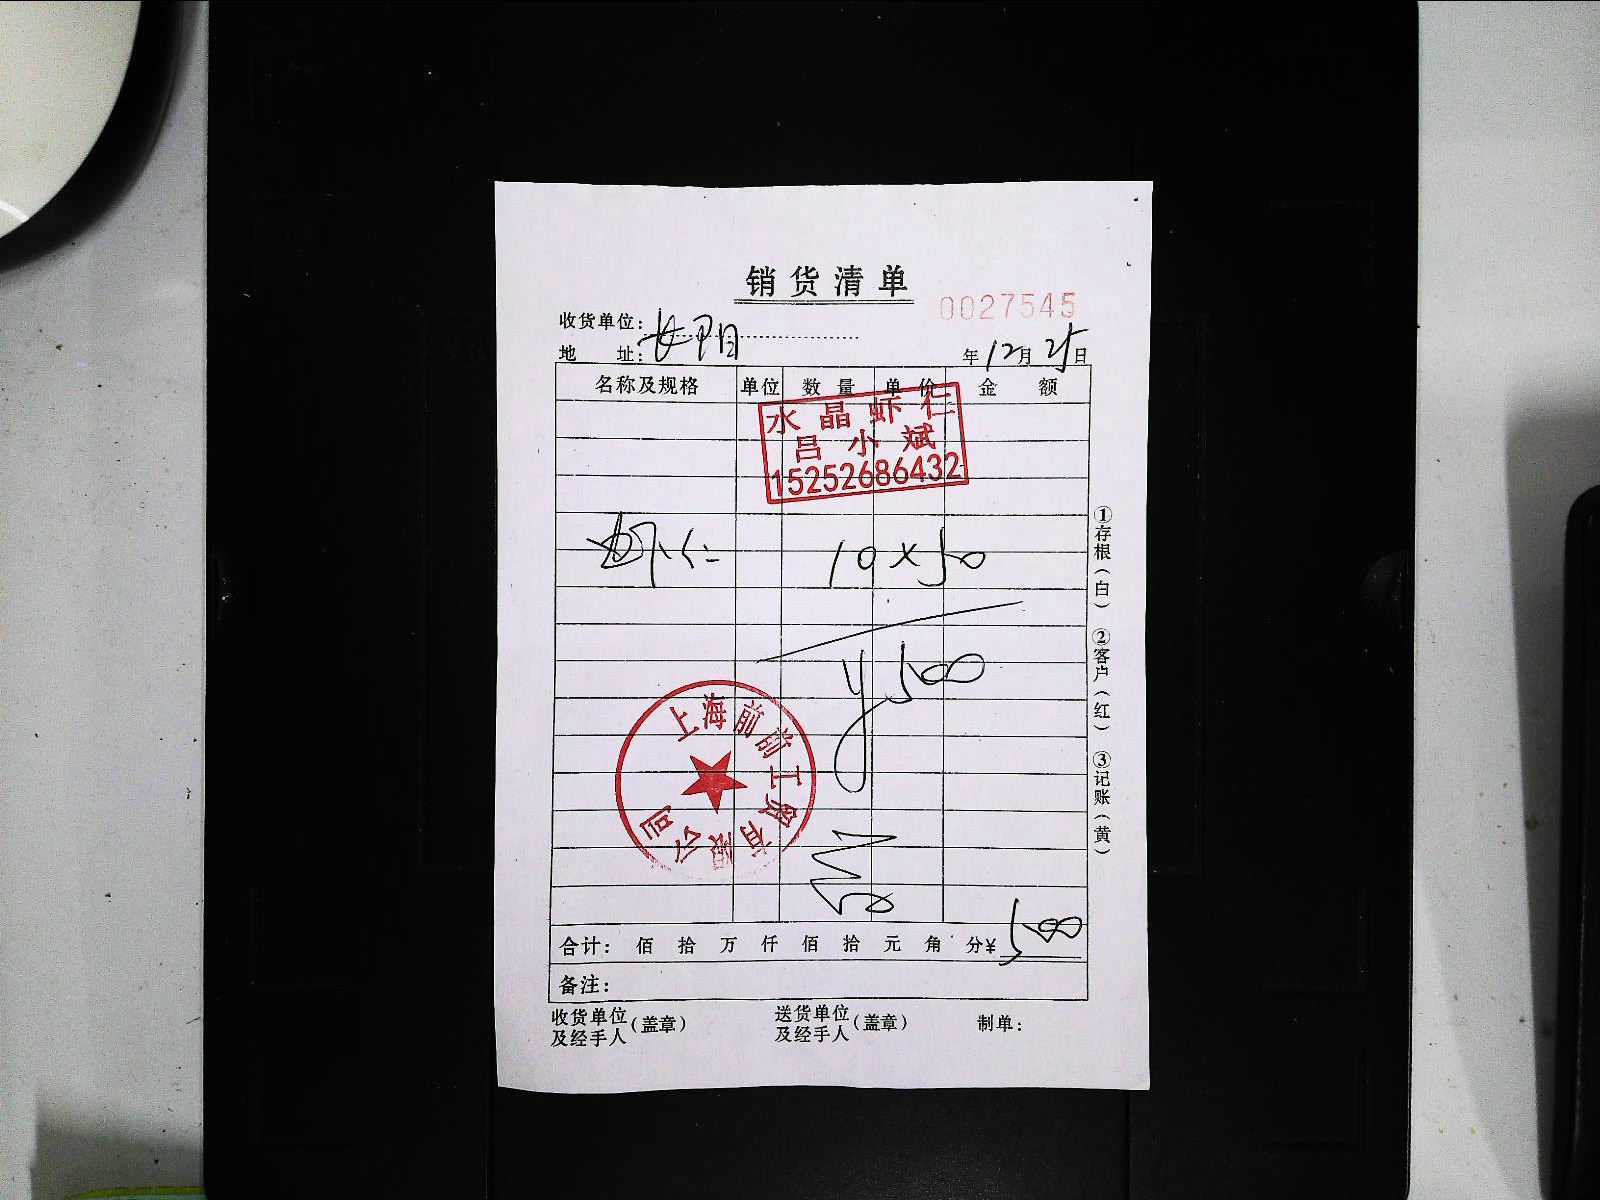 销货清单
0027545
收货单位：长阳
地　址：
年12月25日
名称及规格 单位 数量 单价 金额
水晶虾仁
吕小斌
15252686432
虾仁 10×50
¥500
上海前前工贸有限公司
合计： 佰 拾 万 仟 佰 拾 元 角 分¥ 500
备注：
收货单位及经手人（盖章）
送货单位及经手人（盖章）
制单：
①存根（白） ②客户（红） ③记账（黄）